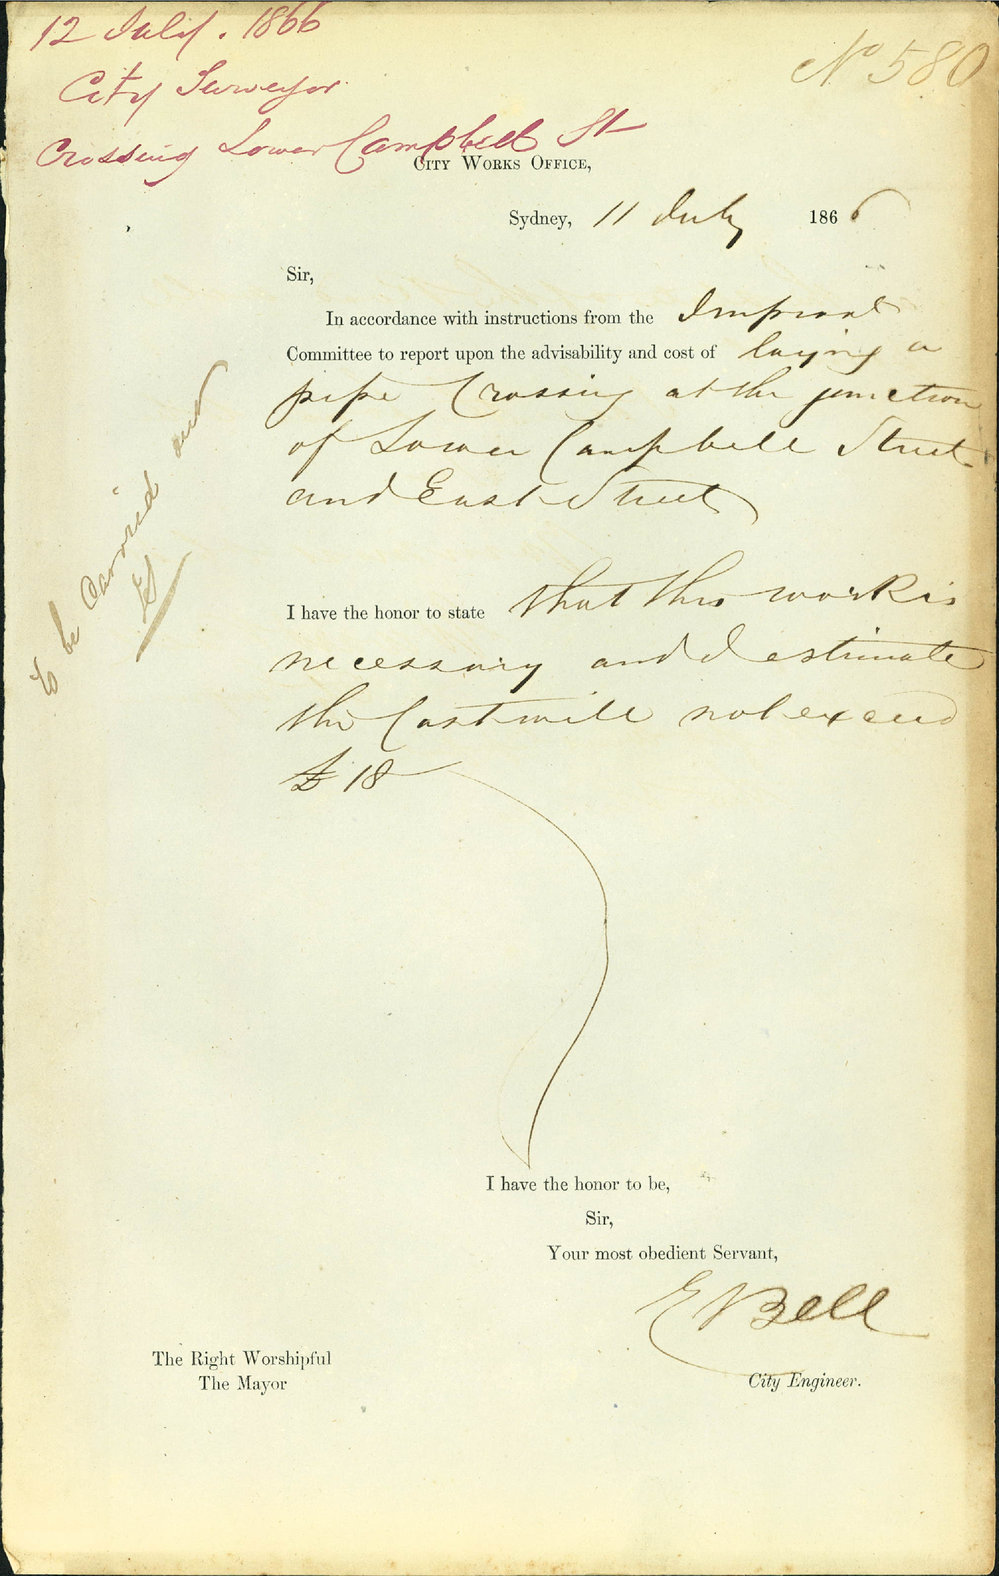 12 July. 1866
No 580
City Surveyor
Crossing Lower Campbell St
CITY WORKS OFFICE,
Sydney, 11 July 1866
Sir,
In accordance with instructions from the
Committee to report upon the advisability and cost of laying a
pipe Crossing at the junction
of Lower Campbell Street
and East Street
to be carried out
I have the honor to state that this work is
necessary and I estimate
the Cost will not exceed
£18
I have the honor to be,
Sir,
Your most obedient Servant,
E Bell
The Right Worshipful
The Mayor
City Engineer.